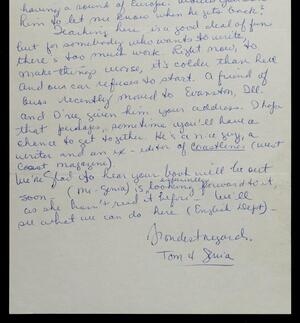 having a round of Europe. Would you
him to let me know when he gets back?
Teaching here is a good deal of fun
but for somebody who wants to write,
there's too much work. Right now, to
make things worse, it's colder than hell
and our car refuses to start. A friend of
ours recently moved to Evanston, Ill.
and I've given him your address. I hope
that perhaps, sometime you'll have a
chance to get together. He's a nice guy, a
writer and an ex-editor of Coastlines (west
Coast magazine)
We're glad to hear your book will be out
soon - (Ms. Xenia) is looking forward to it,
as she hasn't read it before - We'll
see what we can do here (English Dept) -
Fondest regards,
Tom & Xenia